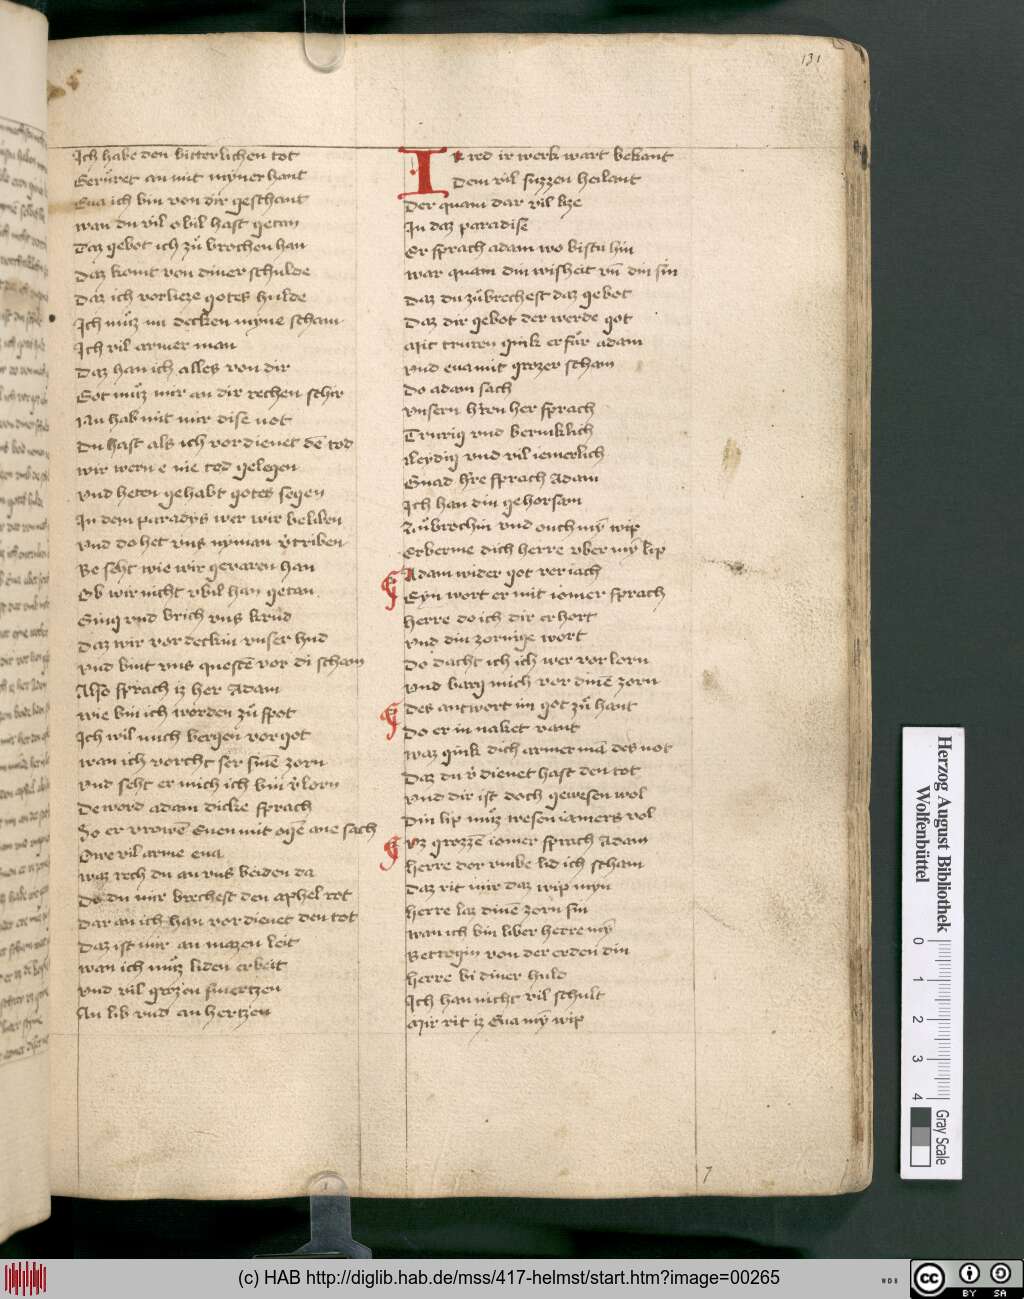 131
Ich habe den bitterlichen tot
Gerůret an mit myner hant
Eua ich bin von dir geschant
wan du vil obil hast getan
Daz gebot ich zů brochen han
Daz komt von diner schulde
Daz ich vorlieze gotes hulde
Ich můz nu decken myne scham
Ich vil armer man
Daz han ich alles von dir
Got můz mir an dir rechen schir
Nu hab mit mir dise not
Du hast als ich vordienet dē tod
wir wern e nie tod gelegen
vnd heten gehabt gotes segen
In dem paradys wer wir beliben
vnd do het vns nyman v̓triben
Be seht wie wir gevaren han
Ob wir nicht vbil han getan
Ging vnd brich vns krud
Daz wir vordeckin vnser hud
vnd bint vns questē vor di scham
Also sprach iz her Adam
wie bin ich worden zů spot
Ich wil mich bergen vor got
wan ich vorcht ser sinē zorn
vnd seht er mich ich bin v̓lorn
De word adam dicke sprach
So er vrowē Euen mit ogē ane sach
Owe vil arme eua
waz rech du an vns beiden da
Do du mir brechest den aphel rot
Dar an ich han vordienet den tot
Daz ist mir an mazen leit
wan ich můz liden erbeit
vnd vil grozen smertzen
An lib vnd an hertzen
Ir wd ir werk wart bekant
Dem vil suzzen heilant
Der quam dar vil lize
In daz paradise
Er sprach adam wo bistu hin
war quam din wisheit vn̄ din sin
Daz du zůbrechest daz gebot
Daz dir gebot der werde got
Mit truren gink er fůr adam
vnd eua mit grozer scham
Do adam sach
vnsern h̓ren her sprach
Trurig vnd bermklich
Neydig vnd vil iemerlich
Gnad h̓re sprach Adam
Ich han din gehorsam
Zůbrochin vnd ouch mȳ wip
Erberme dich herre vber mȳ lip
Adam wider got ver iach
Syn wort er mit iomer sprach
herre do ich dir erhort
vnd din zornige wort
Do dacht ich ich wer vorlorn
vnd barg mich vor dinē zorn
Des antwort im got zů hant
Do er in naket vant
waz gink dich armer mā des not
Daz du v̓dienet hast den tot
vnd dir ist doch gewesen wol
Din lip můz wesen iamers vol
vz grozzē iomer sprach Adam
herre dor vmbe lid ich scham
Daz rit mir daz wip myn
herre laz dinē zorn sin
wan ich bin liber herre mȳ
Bettogin von der erden din
herre bi diner huld
Ich han nicht vil schult
Mir rit iz Eua mȳ wip
7
Herzog August Bibliothek
Wolfenbüttel
0 1 2 3 4
Gray Scale
(c) HAB http://diglib.hab.de/mss/417-helmst/start.htm?image=00265
WDB
cc BY SA